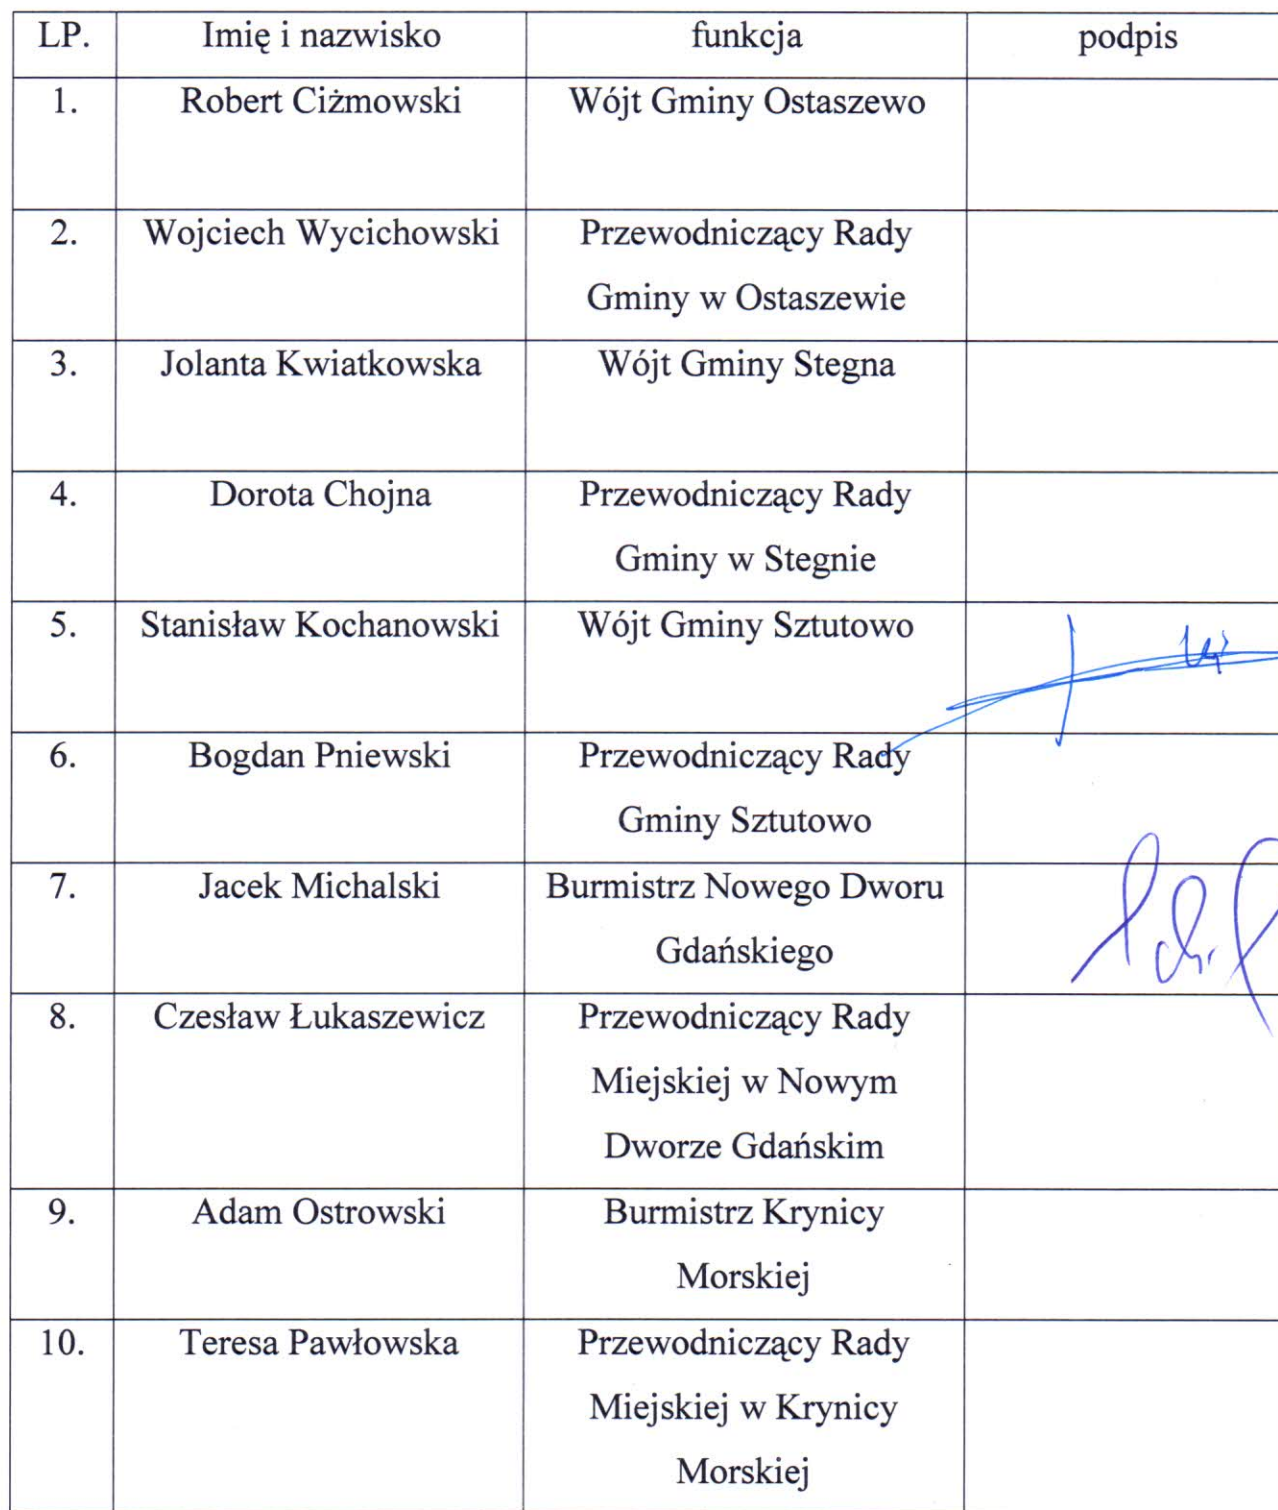 LP. Imię i nazwisko funkcja podpis
1. Robert Ciżmowski Wójt Gminy Ostaszewo
2. Wojciech Wycichowski Przewodniczący Rady
Gminy w Ostaszewie
3. Jolanta Kwiatkowska Wójt Gminy Stegna
4. Dorota Chojna Przewodniczący Rady
Gminy w Stegnie
5. Stanisław Kochanowski Wójt Gminy Sztutowo
6. Bogdan Pniewski Przewodniczący Rady
Gminy Sztutowo
7. Jacek Michalski Burmistrz Nowego Dworu
Gdańskiego
8. Czesław Łukaszewicz Przewodniczący Rady
Miejskiej w Nowym
Dworze Gdańskim
9. Adam Ostrowski Burmistrz Krynicy
Morskiej
10. Teresa Pawłowska Przewodniczący Rady
Miejskiej w Krynicy
Morskiej